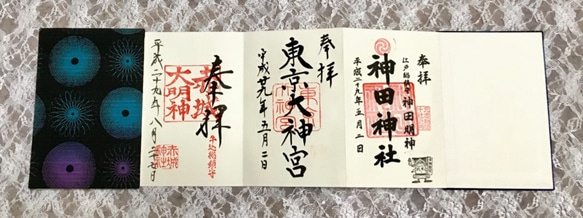 奉拝
江戸総鎮守 神田明神
神田神社
平成二十九年五月二日
奉拝
東京大神宮
平成廿九年五月二日
奉拝
牛込総鎮守
赤城大明神
赤城神社